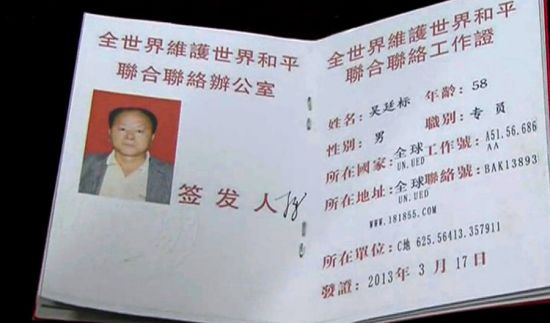 全世界維護世界和平
聯合聯絡辦公室
签发人
全世界維護世界和平
聯合聯絡工作證
姓名: 吴廷标 年齡: 58
性别: 男 職别: 专 员
所在國家: 全球 工作號: A51.56.686
UN.UED AA
所在地址: 全球 聯絡號: BAK13893
UN.UED
WWW.181855.COM
所在單位: C地 625.56413.357911
發證: 2013年 3 月 17日